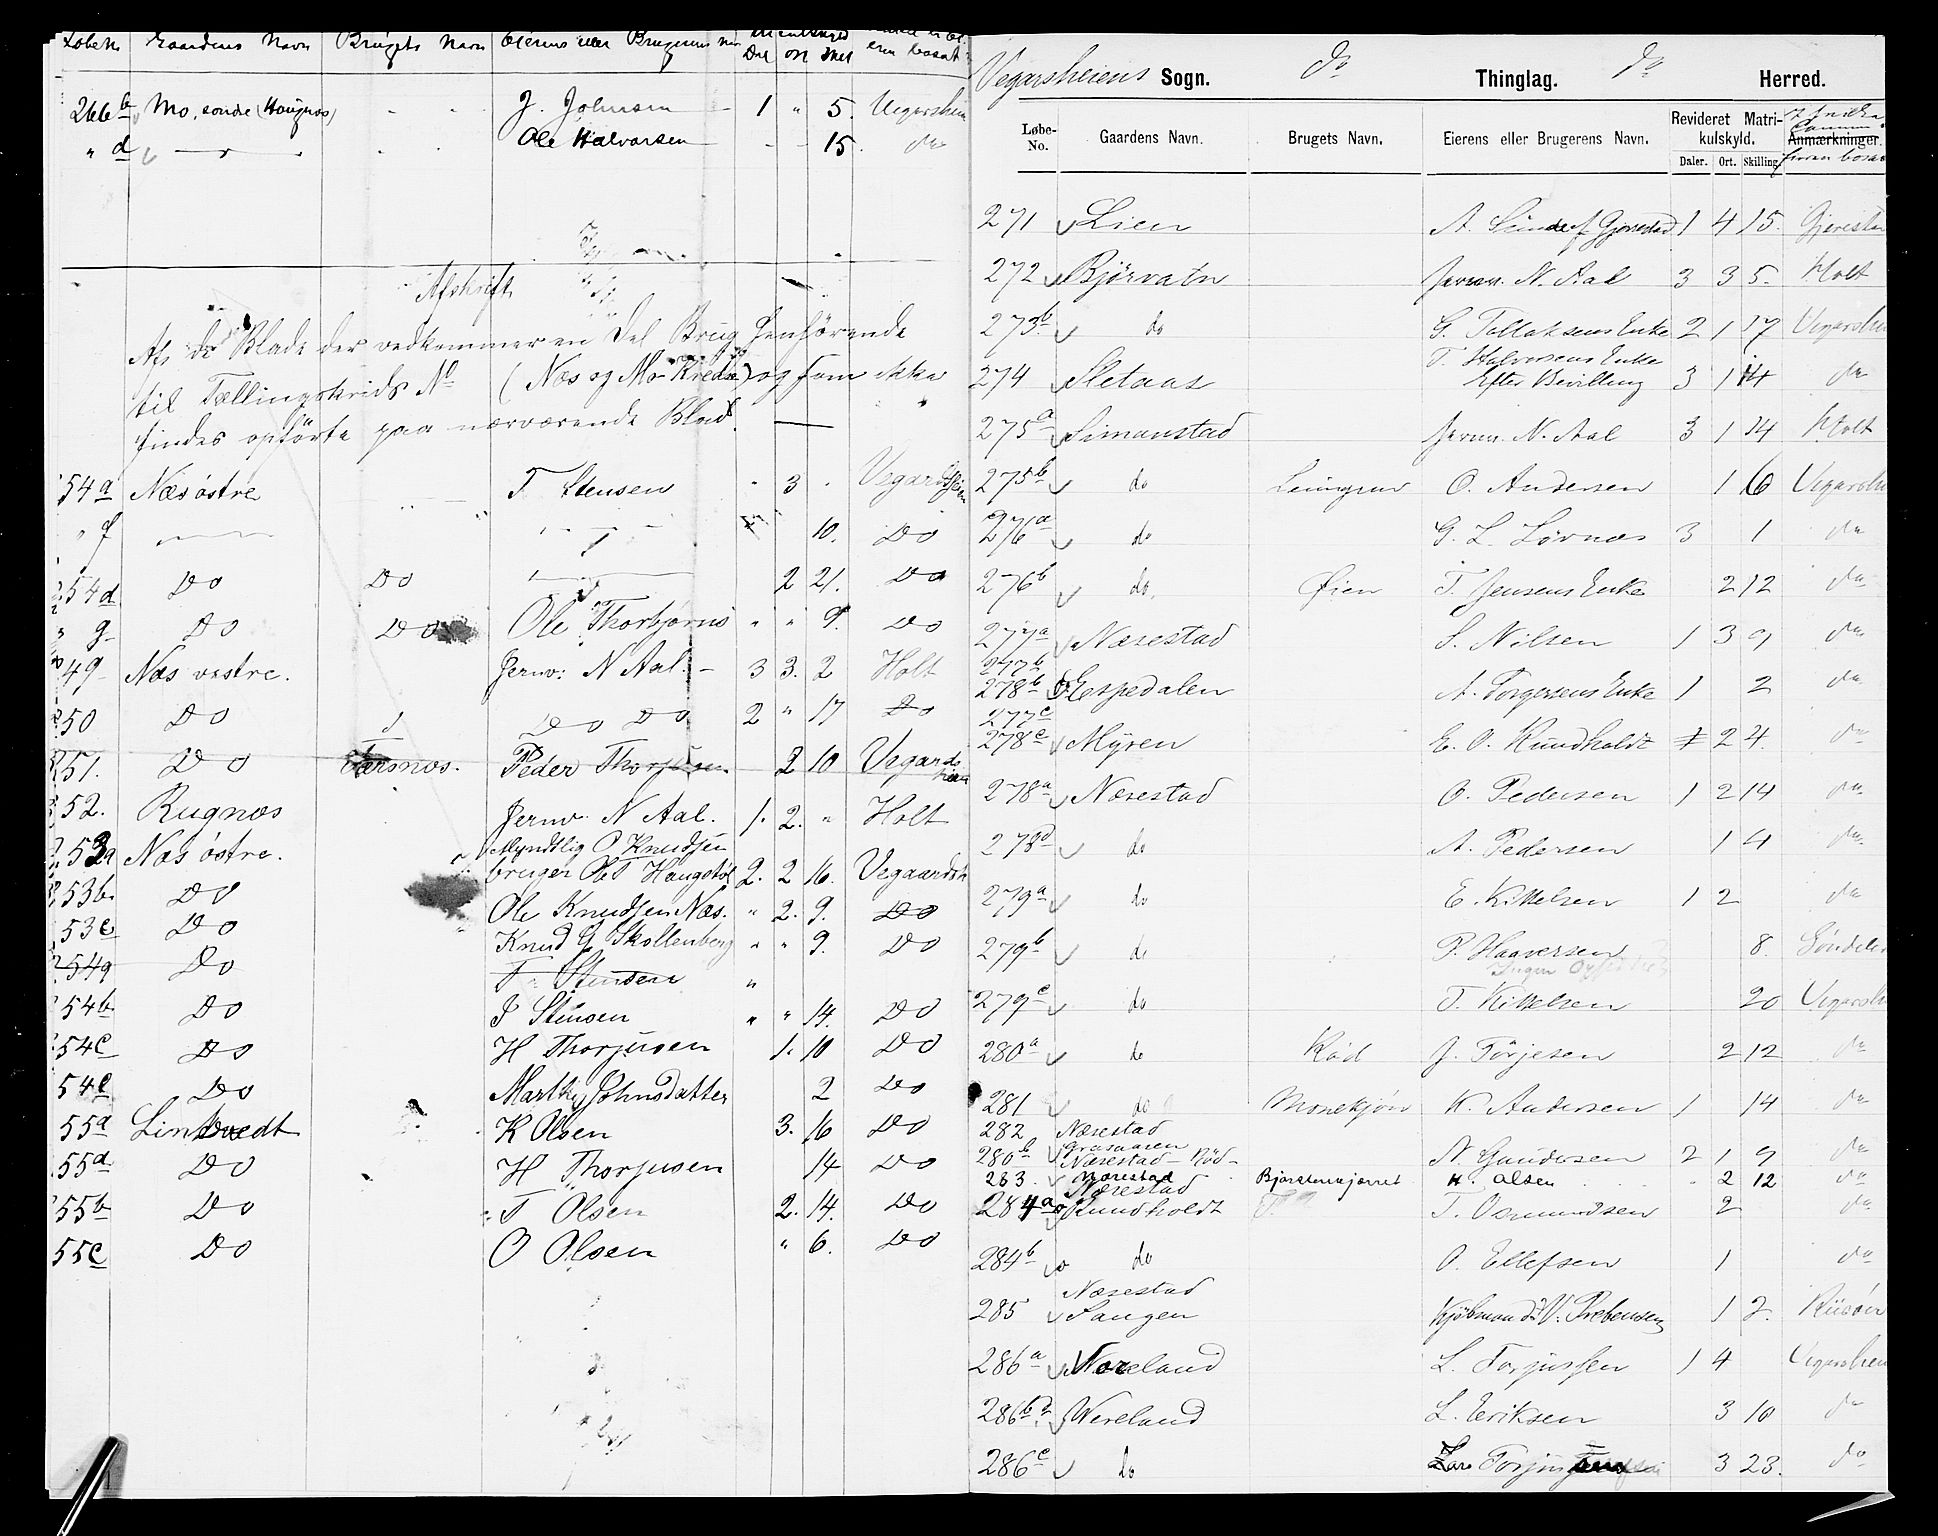 Løbe No Gaardens Navn Brugets Navn Eierens eller Brugerens
Dal ort Skel
266 b Mo, søndre (Haugnæs) J. Johnsen 1 " 5. Vegarshein
" d Ole Halvorsen - - 15. do
Afskrift
Af de Blade der vedkommer en Del Brug henhörende
til Tællingskrids No (Næs og Mo Kreds) og som ikke
findes opförte paa nærværende Blad.
54a Næs østre T Stensen " 3 " Vegardsheien
" f 10. Do
54d Do Do 2 21. Do
" g Do Do Ole Thorbjørns " " 9. Do
49 Næs vestre. Jernv: N Aal. - 3 3. 2 Holt
50 Do Do Do 2 " 17 Do
51. Do Peder Thorjusen 2 10 Vegards
52. Rugnæs Jernv. N Aal. 1. 2. " Holt
53a Næs østre. Myndtlig O Knudsen
bruger Ole T Haugstøl 2. 2 16. Vegaardsh
53b Do Ole Knudsen Næs. " 2. 9. Do
53c Do Knud G Skollenborg " " 9. Do
54a Do T Stensen "
54b Do J Stensen " " 14. Do
54c Do H Thorjusen 1. 10 Do
54e Do Marthe Johnsdatter 2 Do
55a Lindtvedt K Olsen 3. 16 Do
55d Do H Thorjusen 14 Do
55b Do T Olsen 2. 14. Do
55c Do O Olsen " 6. Do
Vegarsheiens Sogn. do Thinglag. do Herred.
Løbe-No. Gaardens Navn. Brugets Navn. Eierens eller Brugerens Navn. Revideret Matrikulskyld. Anmærkninger.
Daler. Ort. Skilling.
271 Lien A. Gjerestad 1 4 15. Gjerestad
272 Björvatn Jernv. N. Aal 3 3 5. Holt
273b do G. Tallaksens Enke 2 1 17 Vegarshe
274 Sletaas T. Halvorsens Enke
Efter Bevilling 3 1 14 do
275a Simonstad Jernv. N. Aal 3 1 14 Holt
275b do O. Andersen 1 6 Vegarshe
276a do G. L. Lövnæs 3 1 do
276b do. Øien T. Jensens Enke 2 12 do
277a Næsestad S. Nilsen 1 3 9 do
277b
278b Espedalen A. Torgersens Enke 1 2 do
277c
278c Myren E. O. Rundholdt 2 4. do
278a Næsestad O. Pedersen 1 2 14 do
278d do A. Pedersen 1 4 do
279a do E. Kittelsen 1 2 do
279b do P. Haaversen 8. Söndele
279c do T. Kittelsen 20 Vegarshe
280a do Rød J. Törjesen 2 12 do
281 do Monekjøn K. Andersen 1 14 do
282 Næsestad
280b Næsestad - Rød - N. Gundersen 2 1 9 do
283 Næsestad K. Olsen 2 12 do
Næsestad
284a Rundholdt T. Osmundsen 2 do
284b do O. Ellefsen 1 do
Næsestad
285 Sangen Kjöbmand V. Prebensen 1 2. Riisöer
286a Næreland L. Torjussen 1 4 Vegarshein
286b Wereland L. Eriksen 3 10 do
286c do Lars Torjus 3 23. do